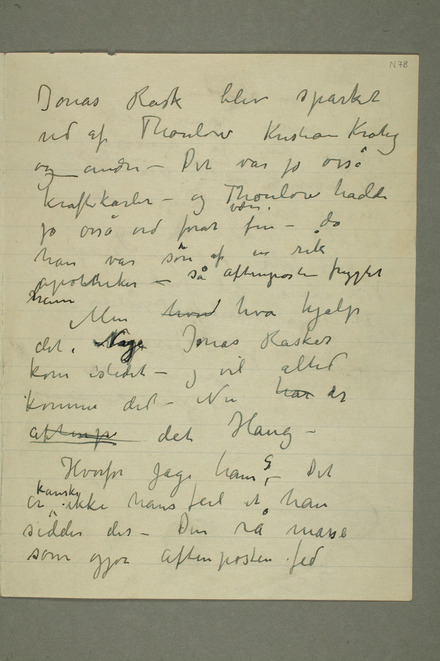 N78
Jonas Rask blev sparket
ud af Thoulow Kristian Krohg
og andre – Det var jo også
kraftkarler – og Thoulow hadde
jo også råd
han var søn af en rik
apotheker – så aftenposten frygtet
ham
Men hvad hva hjalp
det. Nage Jonas Rasker
kom istedet – og vil altid
komme det – Nu har er
aftenp det Haug –
Hvorfor jage ham? – Det
er kanske ikke hans feil at han
sidder der – Den rå masse
som gjør aftenposten fed